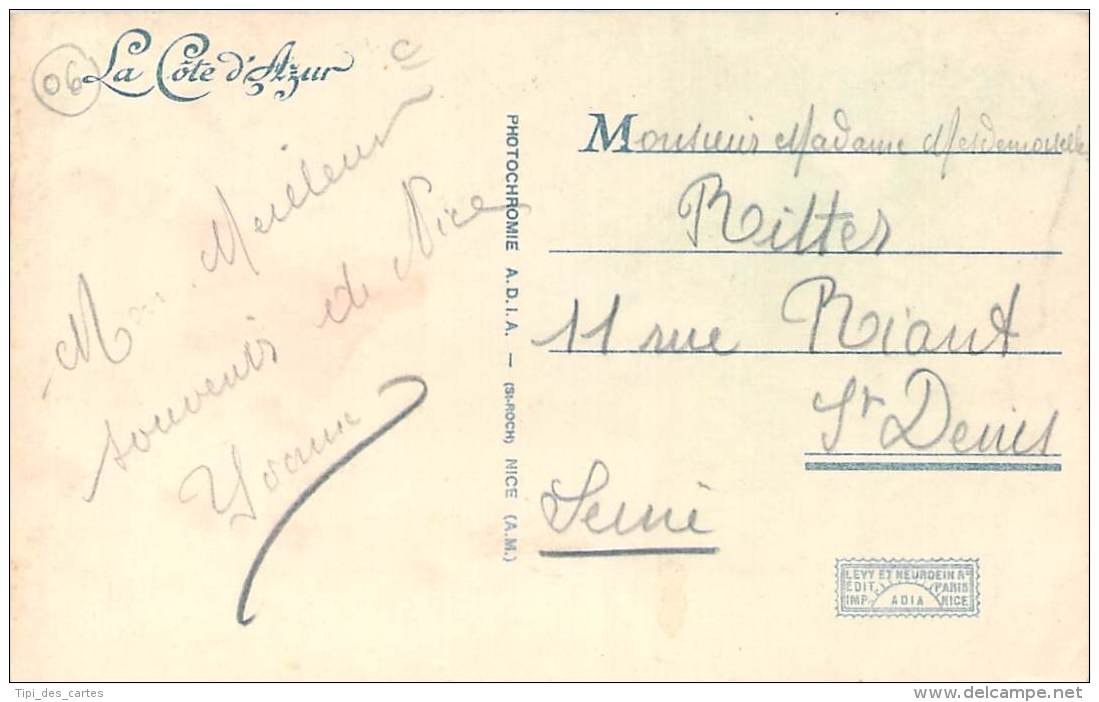 06
La Côte d'Azur
Mon Meilleur
souvenir de Nice
Yvonne
PHOTOCHROMIE A.D.I.A. — (St-ROCH) NICE (A.M.)
Monsieur Madame Mesdemoiselles
Ritter
11 rue Riant
St Denis
Seine
LEVY ET NEURDEIN Rs
EDIT. PARIS
IMP. ADIA NICE
Tipi_des_cartes
www.delcampe.net